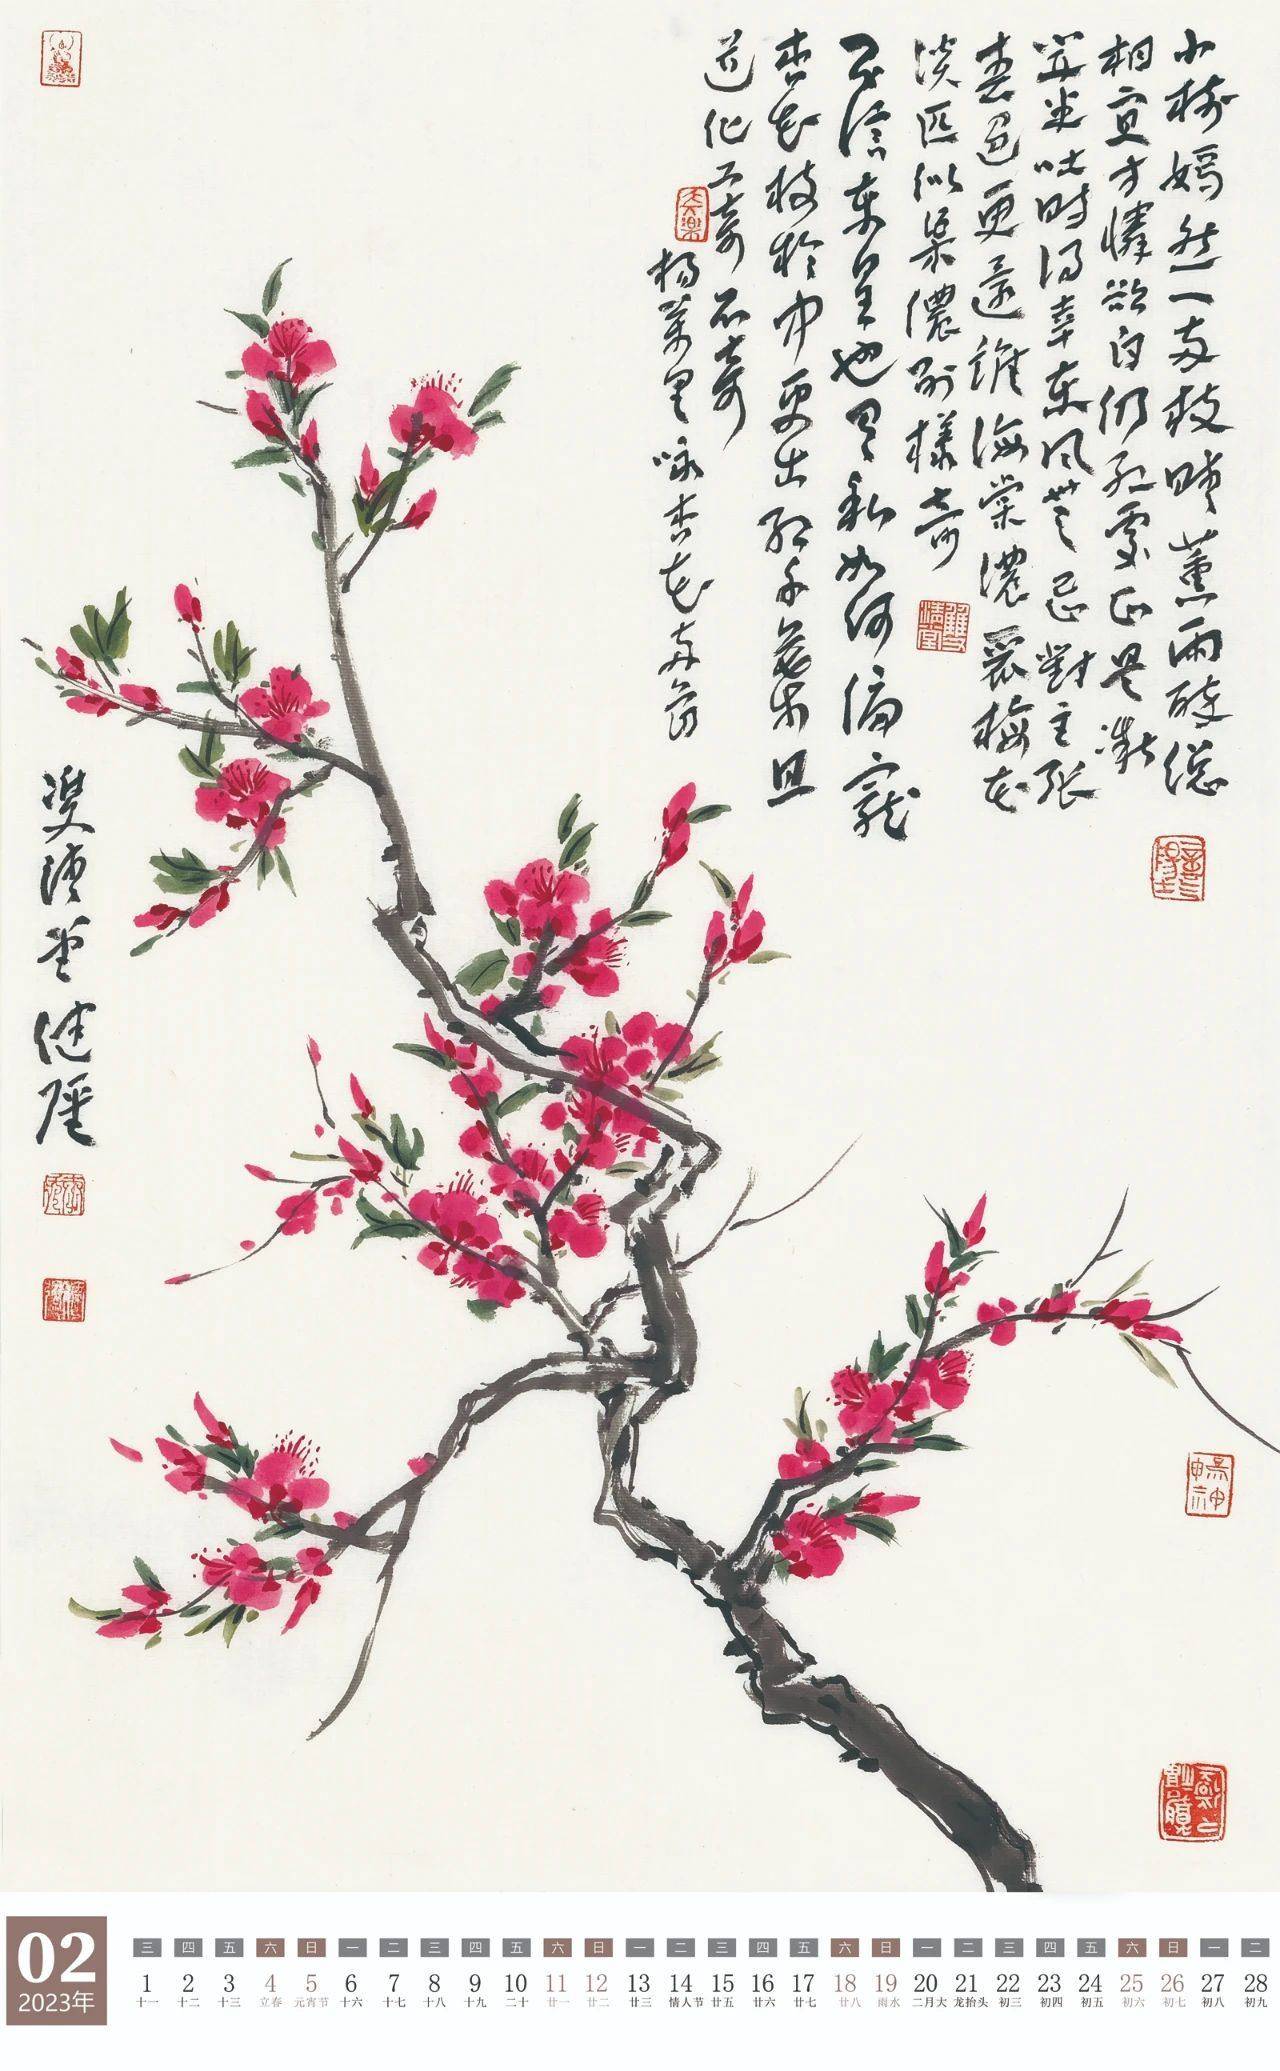 小树嫣然一两枝晴薰雨醉总
相宜才怜欲白仍红处正是微
开半吐时得幸东风无忌對主张
春色更還誰海棠濃麗梅花
淡匹似渠儂别樣奇
不信東皇也有私如何偏寵
杏花枝於中更出红千葉且
道化工奇不奇
楊萬里咏杏花两首
02
2023年
三 四 五 六 日 一 二 三 四 五 六 日 一 二 三 四 五 六 日 一 二 三 四 五 六 日 一 二
1 2 3 4 5 6 7 8 9 10 11 12 13 14 15 16 17 18 19 20 21 22 23 24 25 26 27 28
十一 十二 十三 立春 元宵节 十六 十七 十八 十九 二十 廿一 廿二 廿三 情人节 廿五 廿六 廿七 廿八 雨水 二月大 龙抬头 初三 初四 初五 初六 初七 初八 初九